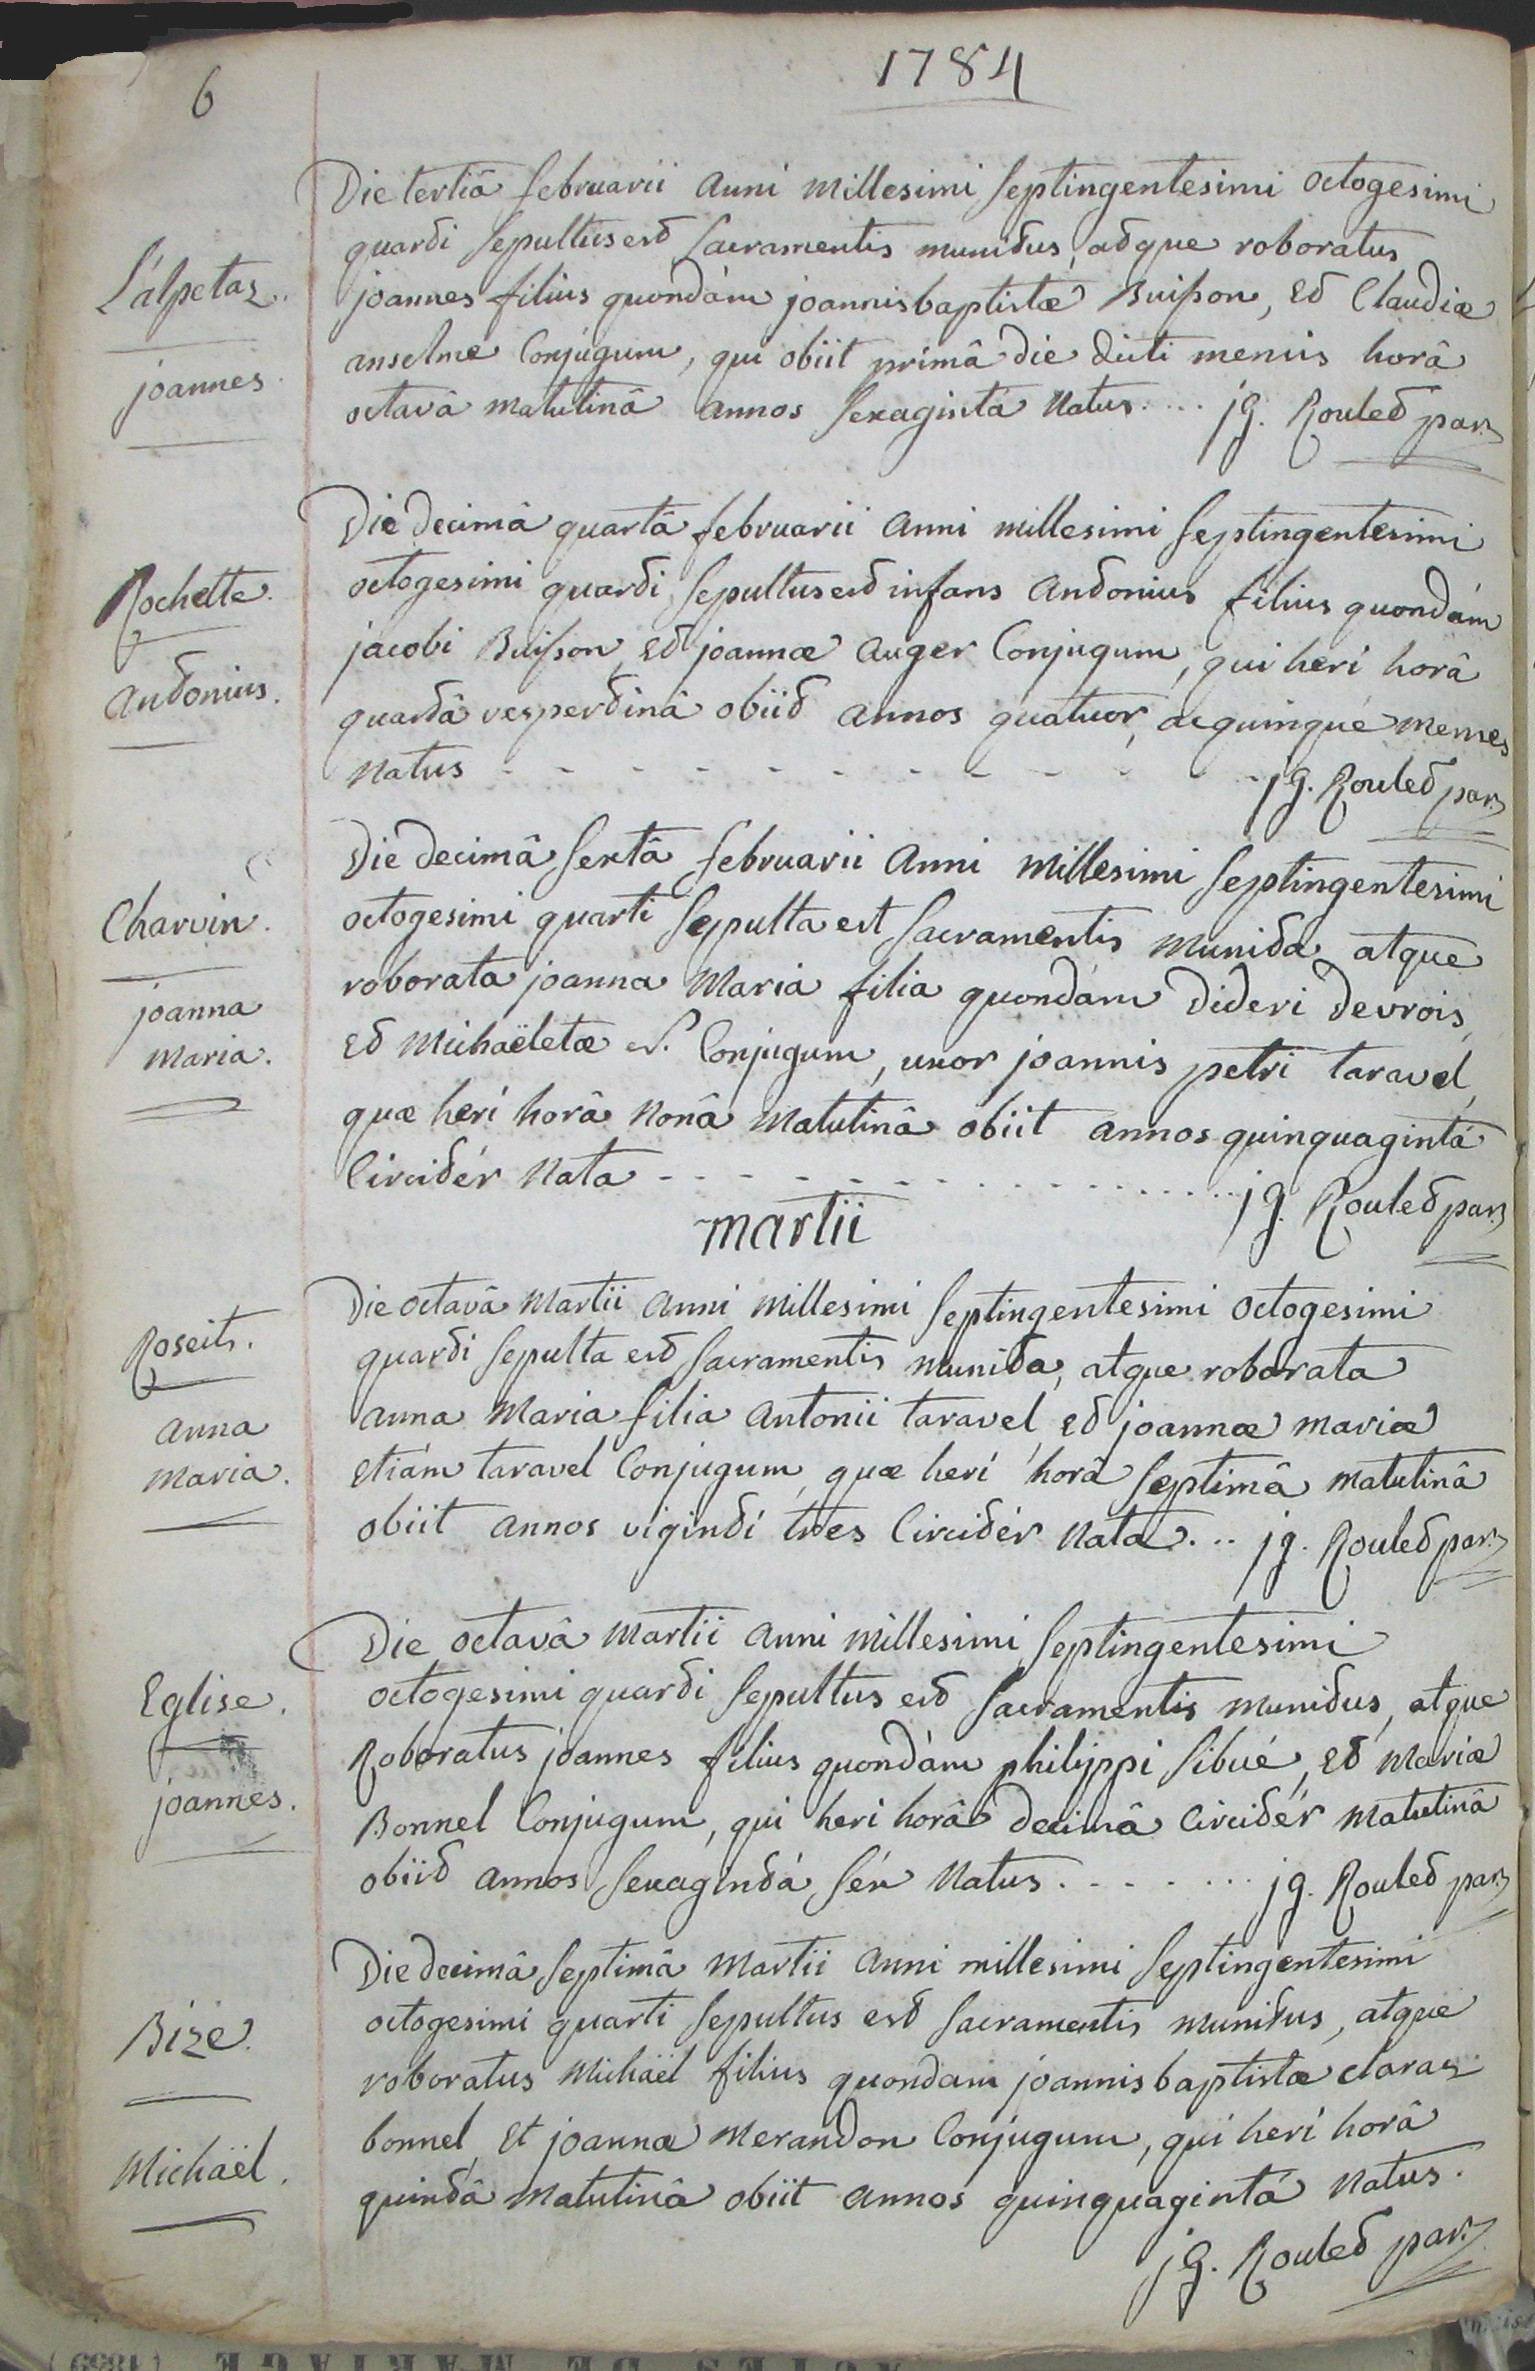 6
1784
Die tertiâ februarii anni millesimi septingentesimi octogesimi
quarti sepultus est sacramentis munitus, atque roboratus
L'alpetaz.
joannes filius quondàm joannis baptistæ Buisson, et Claudiæ
anselme Conjugum, qui obiit primâ die dicti mensis horâ
joannes.
octavâ matutinâ annos sexagintá natus.... j g. Roulet par.
Die decimâ quartâ februarii anni millesimi septingentesimi
Rochette.
octogesimi quarti sepultus est infans antonius filius quondám
jacobi Buisson, et joannæ auger Conjugum, qui heri horâ
antonius.
quartâ vespertinâ obiit annos quatuor, ac quinque menses
natus - - - - - - - - - - - j g. Roulet par.
Die decimâ sextâ februarii anni millesimi septingentesimi
Charvin.
octogesimi quarti sepulta est sacramentis munita atque
roborata joanna maria filia quondám dideri devrois,
joanna
maria.
et michaëletæ N. Conjugum, uxor joannis petri taravel,
quæ heri horâ nonâ matutinâ obiit annos quinquagintá
Circitér nata - - - - - - - - - - j g. Roulet par.
martii
Die octavâ martii anni millesimi septingentesimi octogesimi
Roseits.
quarti sepulta est sacramentis munita, atque roborata
anna maria filia antonii taravel, et joannæ mariæ
anna
maria.
etiám taravel Conjugum, quæ heri horâ septimâ matutinâ
obiit annos viginti tres Circitér nata... j g. Roulet par.
Die octavâ martii anni millesimi septingentesimi
Eglise.
octogesimi quarti sepultus est sacramentis munitus, atque
Roboratus joannes filius quondàm philippi sibué, et mariæ
joannes.
Bonnel Conjugum, qui heri horâ decimâ Circitér matutinâ
obiit annos sexagintá séx natus. - - - - ... j g. Roulet par.
Die decimâ septimâ martii anni millesimi septingentesimi
octogesimi quarti sepultus est sacramentis munitus, atque
Bize.
roboratus michaël filius quondam joannis baptistæ claraz
bonnel, et joannæ merandon Conjugum, qui heri horâ
Michaël.
quintâ matutinâ obiit annos quinquagintá natus.
j g. Roulet par.